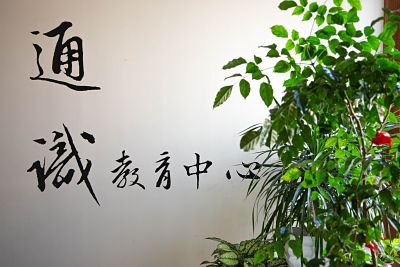 通
識教育中心